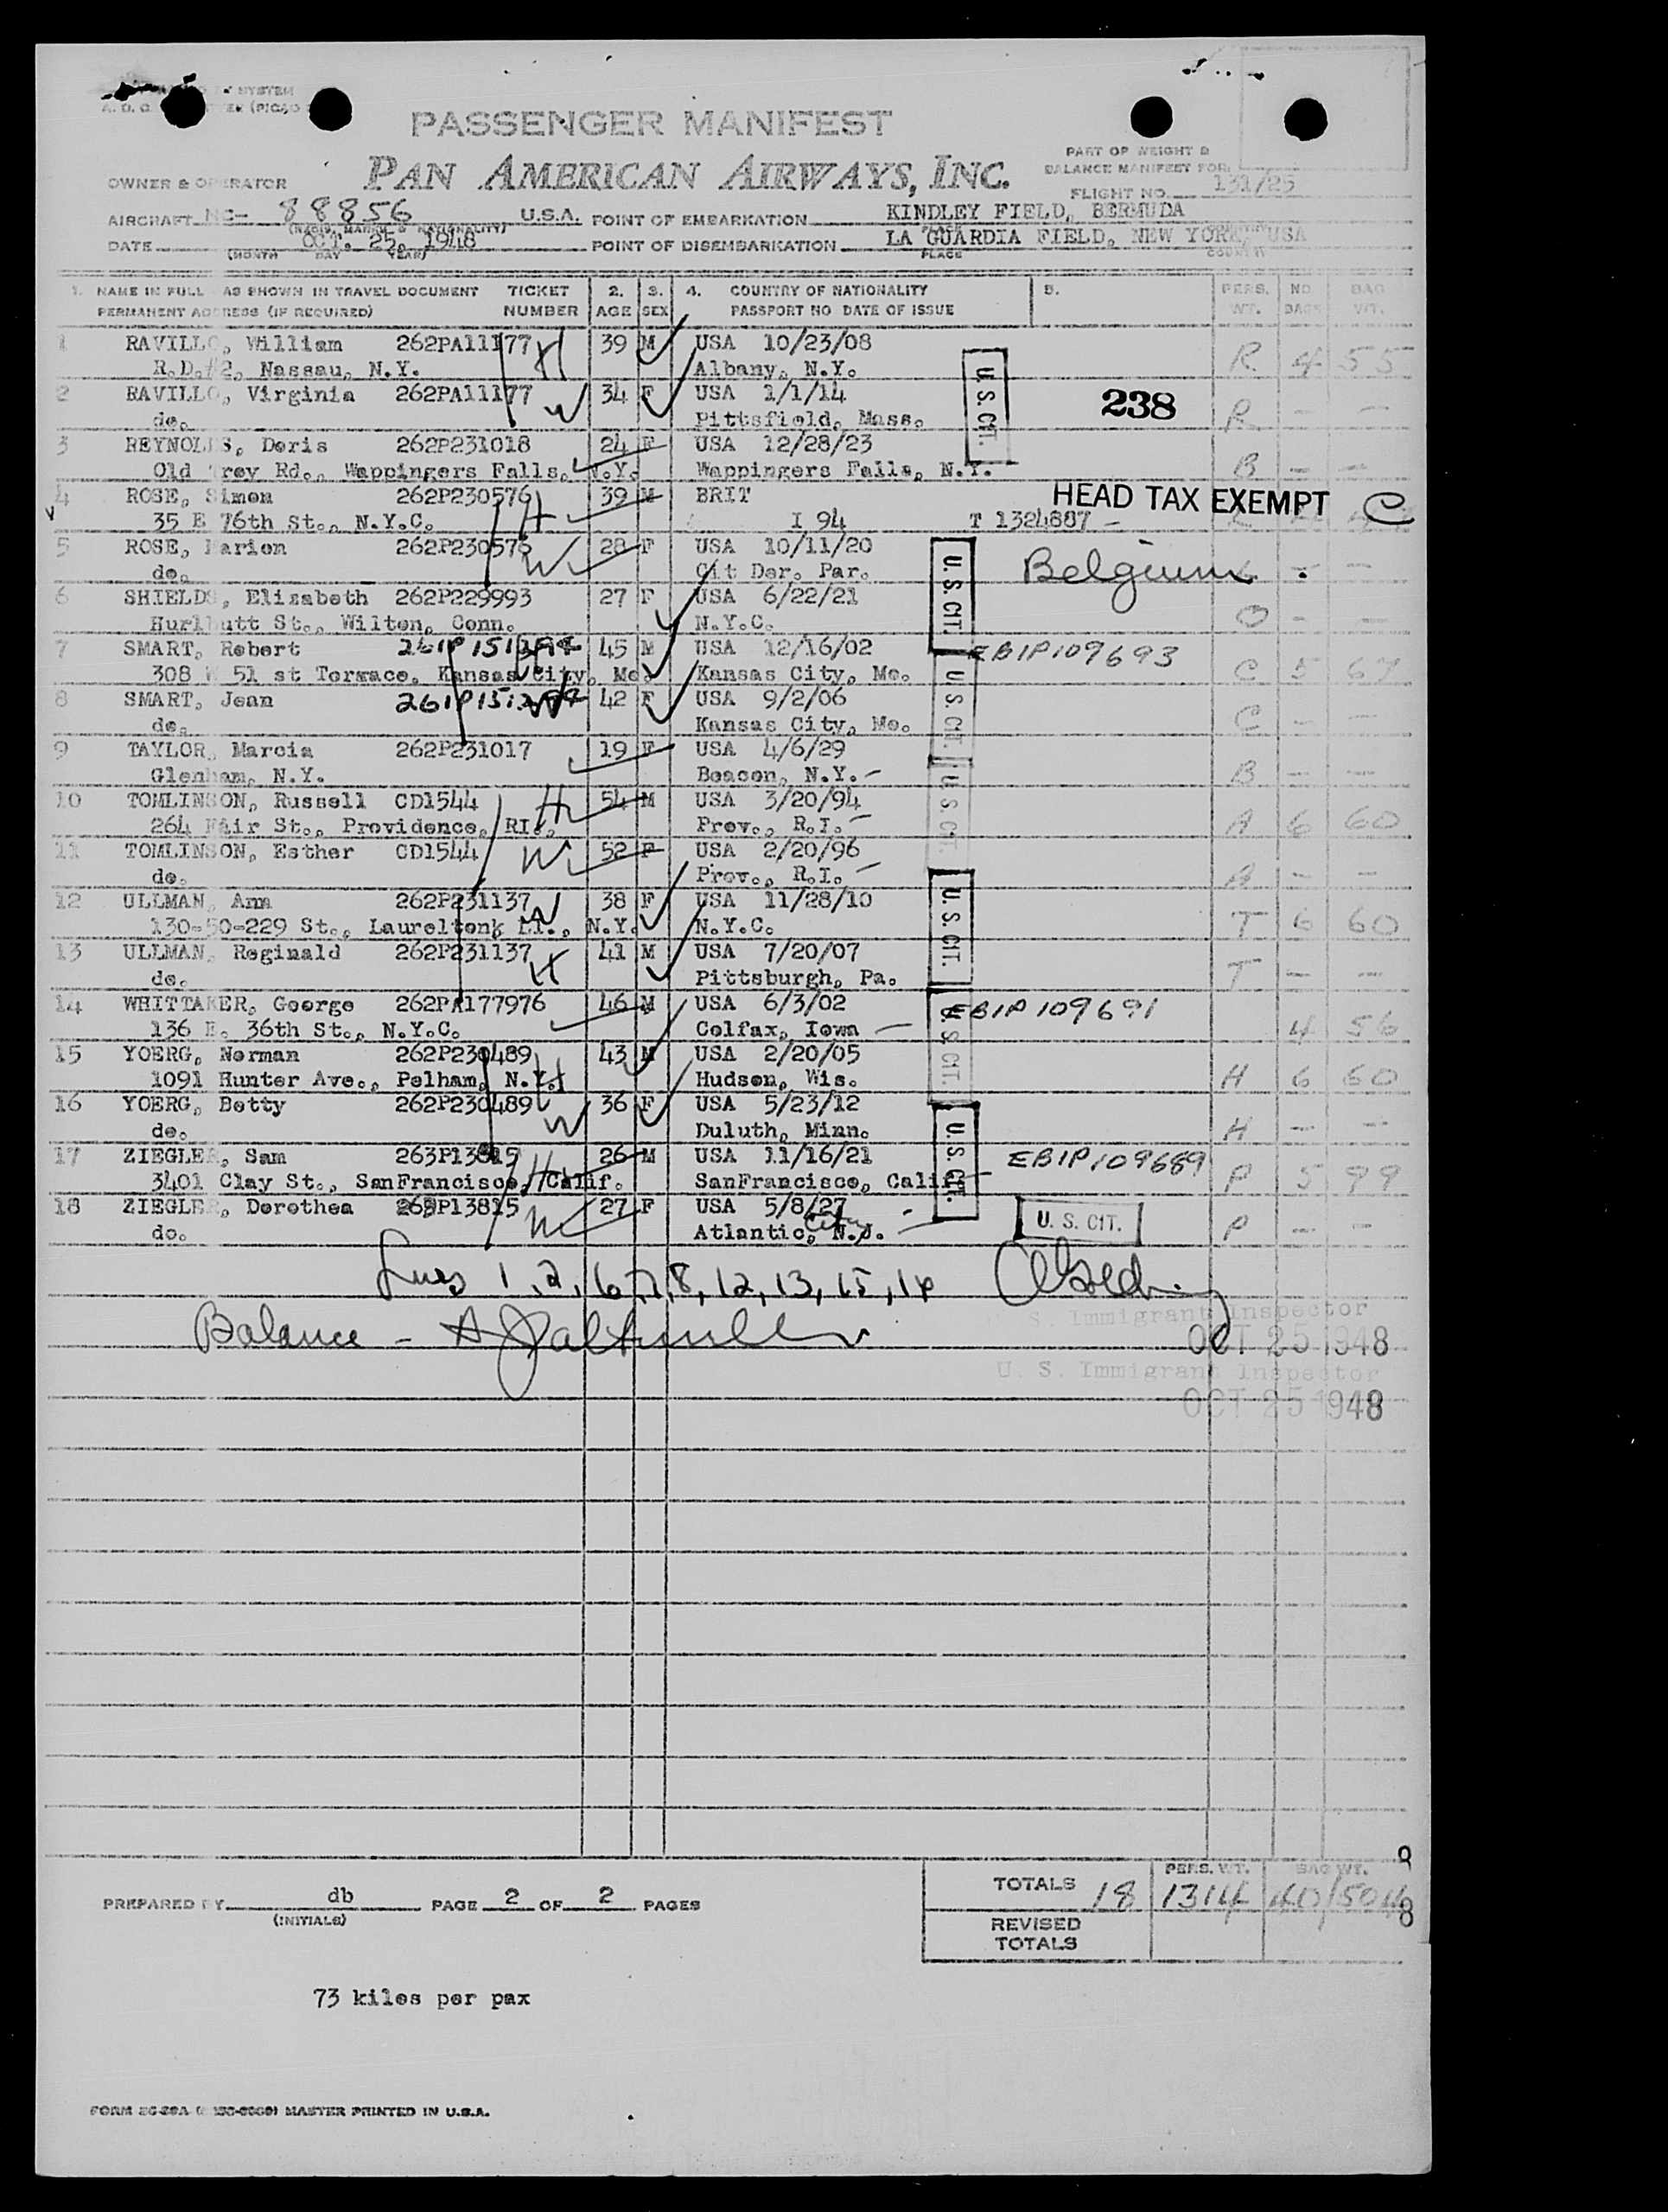 SYSTEM
PASSENGER MANIFEST
PAN AMERICAN AIRWAYS, INC.
PART OF WEIGHT &
BALANCE MANIFEST FOR:
FLIGHT NO. 131/25
OWNER & OPERATOR
AIRCRAFT NC- 88856 U.S.A. POINT OF EMBARKATION KINDLEY FIELD, BERMUDA
DATE OCT. 25, 1948 POINT OF DISEMBARKATION LA GUARDIA FIELD, NEW YORK, USA
(MONTH DAY YEAR) PLACE COUNTRY
1. NAME IN FULL AS SHOWN IN TRAVEL DOCUMENT TICKET 2. 3. 4. COUNTRY OF NATIONALITY 5. PERS. NO. BAG
PERMANENT ADDRESS (IF REQUIRED) NUMBER AGE SEX PASSPORT NO DATE OF ISSUE WT. BAGS WT.
1 RAVILLO, William 262PA11177 H 39 M USA 10/23/08 R 4 55
R.D.#2, Nassau, N.Y. Albany, N.Y.
2 RAVILLO, Virginia 262PA11177 W 34 F USA 1/1/14 U.S. CIT. 238 R — —
do. Pittsfield, Mass.
3 REYNOLDS, Doris 262P231018 24 F USA 12/28/23 B — —
Old Troy Rd., Wappingers Falls, N.Y. Wappingers Falls, N.Y.
4 ROSE, Simon 262P230576 H 39 M BRIT HEAD TAX EXEMPT C
35 E 76th St., N.Y.C. I 94 T 1324887 —
5 ROSE, Marion 262P230576 W 28 F USA 10/11/20 U.S. CIT. Belgium
do. Cit Der. Par.
6 SHIELDS, Elizabeth 262P229993 27 F USA 6/22/21 O — —
Hurlbutt St., Wilton, Conn. N.Y.C.
7 SMART, Robert 45 M USA 12/16/02 EBIP109693 C 5 67
308 W 51 st Terrace, Kansas City, Mo. Kansas City, Mo. U.S. CIT.
8 SMART, Jean 42 F USA 9/2/06 C — —
do. Kansas City, Mo.
9 TAYLOR, Marcia 262P231017 19 F USA 4/6/29 B — —
Glenham, N.Y. Beacon, N.Y. —
10 TOMLINSON, Russell CD1544 H 54 M USA 3/20/94 U.S. CIT. A 6 60
264 Fair St., Providence, RI., Prov., R.I. —
11 TOMLINSON, Esther CD1544 W 52 F USA 2/20/96 A — —
do. Prov., R.I. —
12 ULLMAN, Ann 262P231137 W 38 F USA 11/28/10 U.S. CIT. T 6 60
130-50-229 St., Laurelton, LI., N.Y. N.Y.C.
13 ULLMAN, Reginald 262P231137 H 41 M USA 7/20/07 T — —
do. Pittsburgh, Pa.
14 WHITTAKER, George 262PA177976 46 M USA 6/3/02 EBIP 109691 4 56
136 E. 36th St., N.Y.C. Colfax, Iowa — U.S. CIT.
15 YOERG, Norman 262P230489 H 43 M USA 2/20/05 H 6 60
1091 Hunter Ave., Pelham, N.Y. Hudson, Wis.
16 YOERG, Betty 262P230489 W 36 F USA 5/23/12 H — —
do. Duluth, Minn.
17 ZIEGLER, Sam 263P13815 H 26 M USA 11/16/21 U.S. CIT. EBIP109689 P 5 99
3401 Clay St., SanFrancisco, Calif. SanFrancisco, Calif.
18 ZIEGLER, Dorothea 263P13815 W 27 F USA 5/8/27 U. S. CIT. P — —
do. Atlantic, City N.J. —
Lines 1, 2, 6, 7, 8, 12, 13, 15, 16
U. S. Immigrant Inspector
Balance - OCT 25 1948
U. S. Immigrant Inspector
OCT 25 1948
TOTALS 18 PERS. WT. 1314 BAG WT.
PREPARED BY db PAGE 2 OF 2 PAGES
(INITIALS)
REVISED
TOTALS
73 kilos per pax
MASTER PRINTED IN U.S.A.